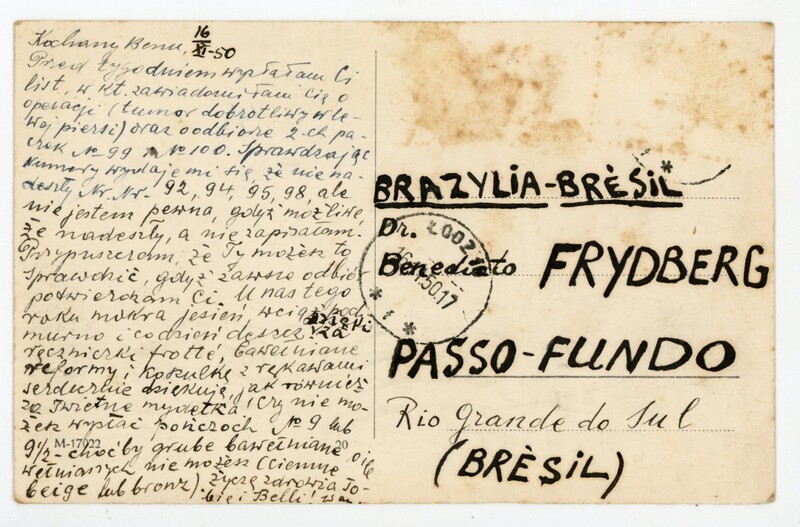 Kochany Benu, 16/XI-50
Przed tygodniem wysłałam Ci
list, w kt. zawiadomiłam Cię o
operacji (tumor dobrotliwy w le-
wej piersi) oraz o odbiorze 2-ch pa-
czek No 99 i No 100. Sprawdzając
numery wydaje mi się, że nie na-
deszły Nr. Nr. 92, 94, 95, 98, ale
nie jestem pewna, gdyż możliwe,
że nadeszły, a nie zapisałam.
Przypuszczam, że Ty możesz to
sprawdzić, gdyż zawsze odbiór
potwierdzam Ci. U nas tego
roku mokra jesień, wciąż pod
murno i codzień deszcz. za
ręczniczki frotté, bawełniane
reformy i koszulkę z rękawami
serdecznie dziękuję, jak również
za świetne mydełka! Czy nie mo-
żesz wysłać pończoch No 9 lub
9½ - choćby grube bawełniane o ile
wełnianych nie możesz (ciemne
beige lub bronz). Życzę zdrowia To-
bie i Belli!
M-17022 20
BRAZYLIA-BRÈSIL
Dr.
Benedicto FRYDBERG
PASSO-FUNDO
Rio Grande do Sul
(BRÈSIL)
ŁÓDŹ 1
50.17